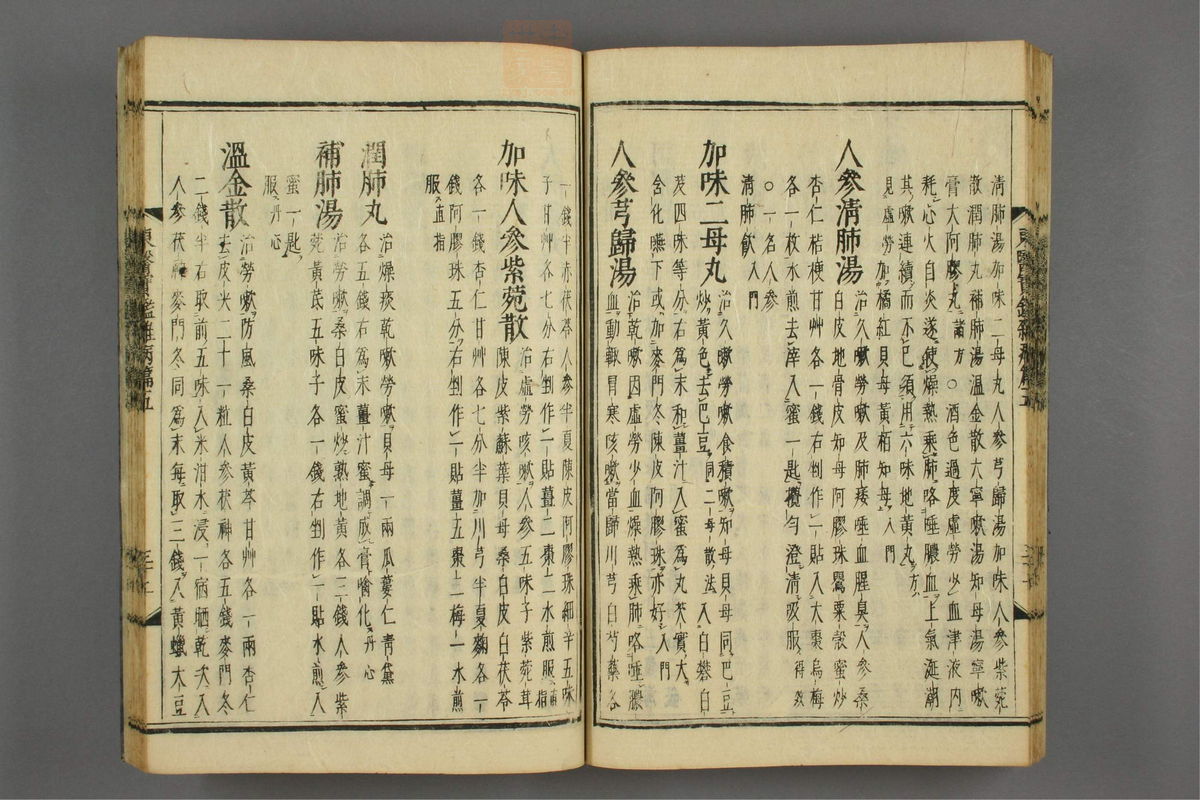 清肺湯加味二母丸人參芎歸湯加味人參紫菀
散潤肺丸補肺湯溫金散大寧嗽湯知母湯寧嗽
膏大阿膠丸諸方○酒色過度虛勞少血津液內
耗心火自炎遂使燥熱乘肺咯唾膿血上氣涎潮
其嗽連續而不已須用六味地黃丸方
見虛勞加橘紅貝母黃栢知母入門
人參清肺湯 治久嗽勞嗽及肺痿唾血腥臭人參桑
白皮地骨皮知母阿膠珠罌粟殼蜜炒
杏仁桔梗甘艸各一錢右剉作一貼入大棗烏梅
各一枚水煎去滓入蜜一匙攪勻澄清吸服得效
○一名人參
清肺飮入門
加味二母丸 治久嗽勞嗽食積嗽知母貝母同巴豆
炒黃色去巴豆同二母散法入白礬白
芨四味等分右爲末和薑汁入蜜爲丸芡實大
含化嚥下或加麥門冬陳皮阿膠珠亦好入門
人參芎歸湯 治乾嗽因虛勞少血燥熱乘肺咯唾膿
血動輒胃寒咳嗽當歸川芎白芍藥各
一錢半赤茯苓人參半夏陳皮阿膠珠細辛五味
子甘艸各七分右剉作一貼薑三棗二水煎服直指
加味人參紫菀散 治虛勞咳嗽人參五味子紫菀茸
陳皮紫蘇葉貝母桑白皮白茯苓
各一錢杏仁甘艸各七分半加川芎半夏麴各一
錢阿膠珠五分右剉作一貼薑五棗二梅一水煎
服直指
潤肺丸 治燥痰乾嗽勞嗽貝母一兩瓜蔞仁靑黛
各五錢右爲末薑汁蜜調成膏噙化丹心
補肺湯 治勞嗽桑白皮蜜炒熟地黃各三錢人參紫
菀黃芪五味子各一錢右剉作一貼水煎入
蜜一匙
服丹心
溫金散 治勞嗽防風桑白皮黃芩甘艸各一兩杏仁
去皮尖二十一粒人參茯神各五錢麥門冬
二錢半右取前五味入米泔水浸一宿晒乾次入
人參茯神麥門冬同爲末每取三錢入黃蠟大豆
東醫寶鑑雜病篇五
東醫寶鑑雜病篇五